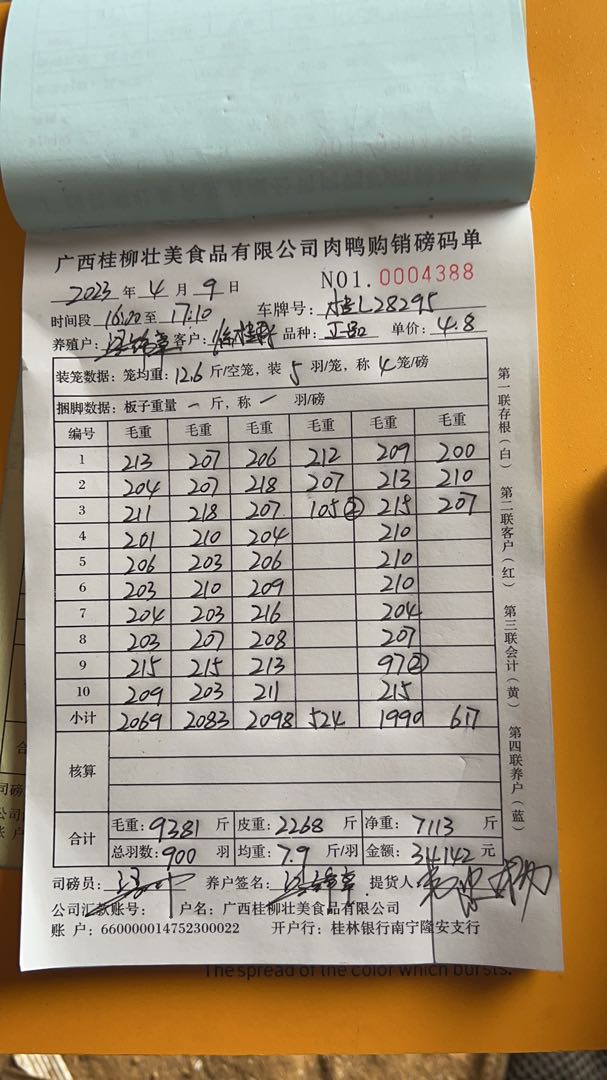 广西桂柳壮美食品有限公司肉鸭购销磅码单
2023 年 4 月 9 日 NO1. 0004388
时间段 16:00 至 17:10 车牌号: 桂L28295
养殖户: 客户: 品种: 正品 单价: 4.8
装笼数据: 笼均重: 12.6 斤/空笼, 装 5 羽/笼, 称 4 笼/磅
捆脚数据: 板子重量 一 斤, 称 一 羽/磅
编号 毛重 毛重 毛重 毛重 毛重 毛重
1 213 207 206 212 209 200
2 204 207 218 207 213 210
3 211 218 207 105② 215 207
4 201 210 204 210
5 206 203 206 210
6 203 210 209 210
7 204 203 216 204
8 203 207 208 207
9 215 215 213 97②
10 209 203 211 215
小计 2069 2083 2098 524 1990 617
核算
合计 毛重: 9381 斤 皮重: 2268 斤 净重: 7113 斤
总羽数: 900 羽 均重: 7.9 斤/羽 金额: 34142 元
司磅员: 养户签名: 提货人
公司汇款账号: 户名: 广西桂柳壮美食品有限公司
账 户: 660000014752300022 开户行: 桂林银行南宁隆安支行
第一联存根(白) 第二联客户(红) 第三联会计(黄) 第四联养户(蓝)
The spread of the color which bursts.